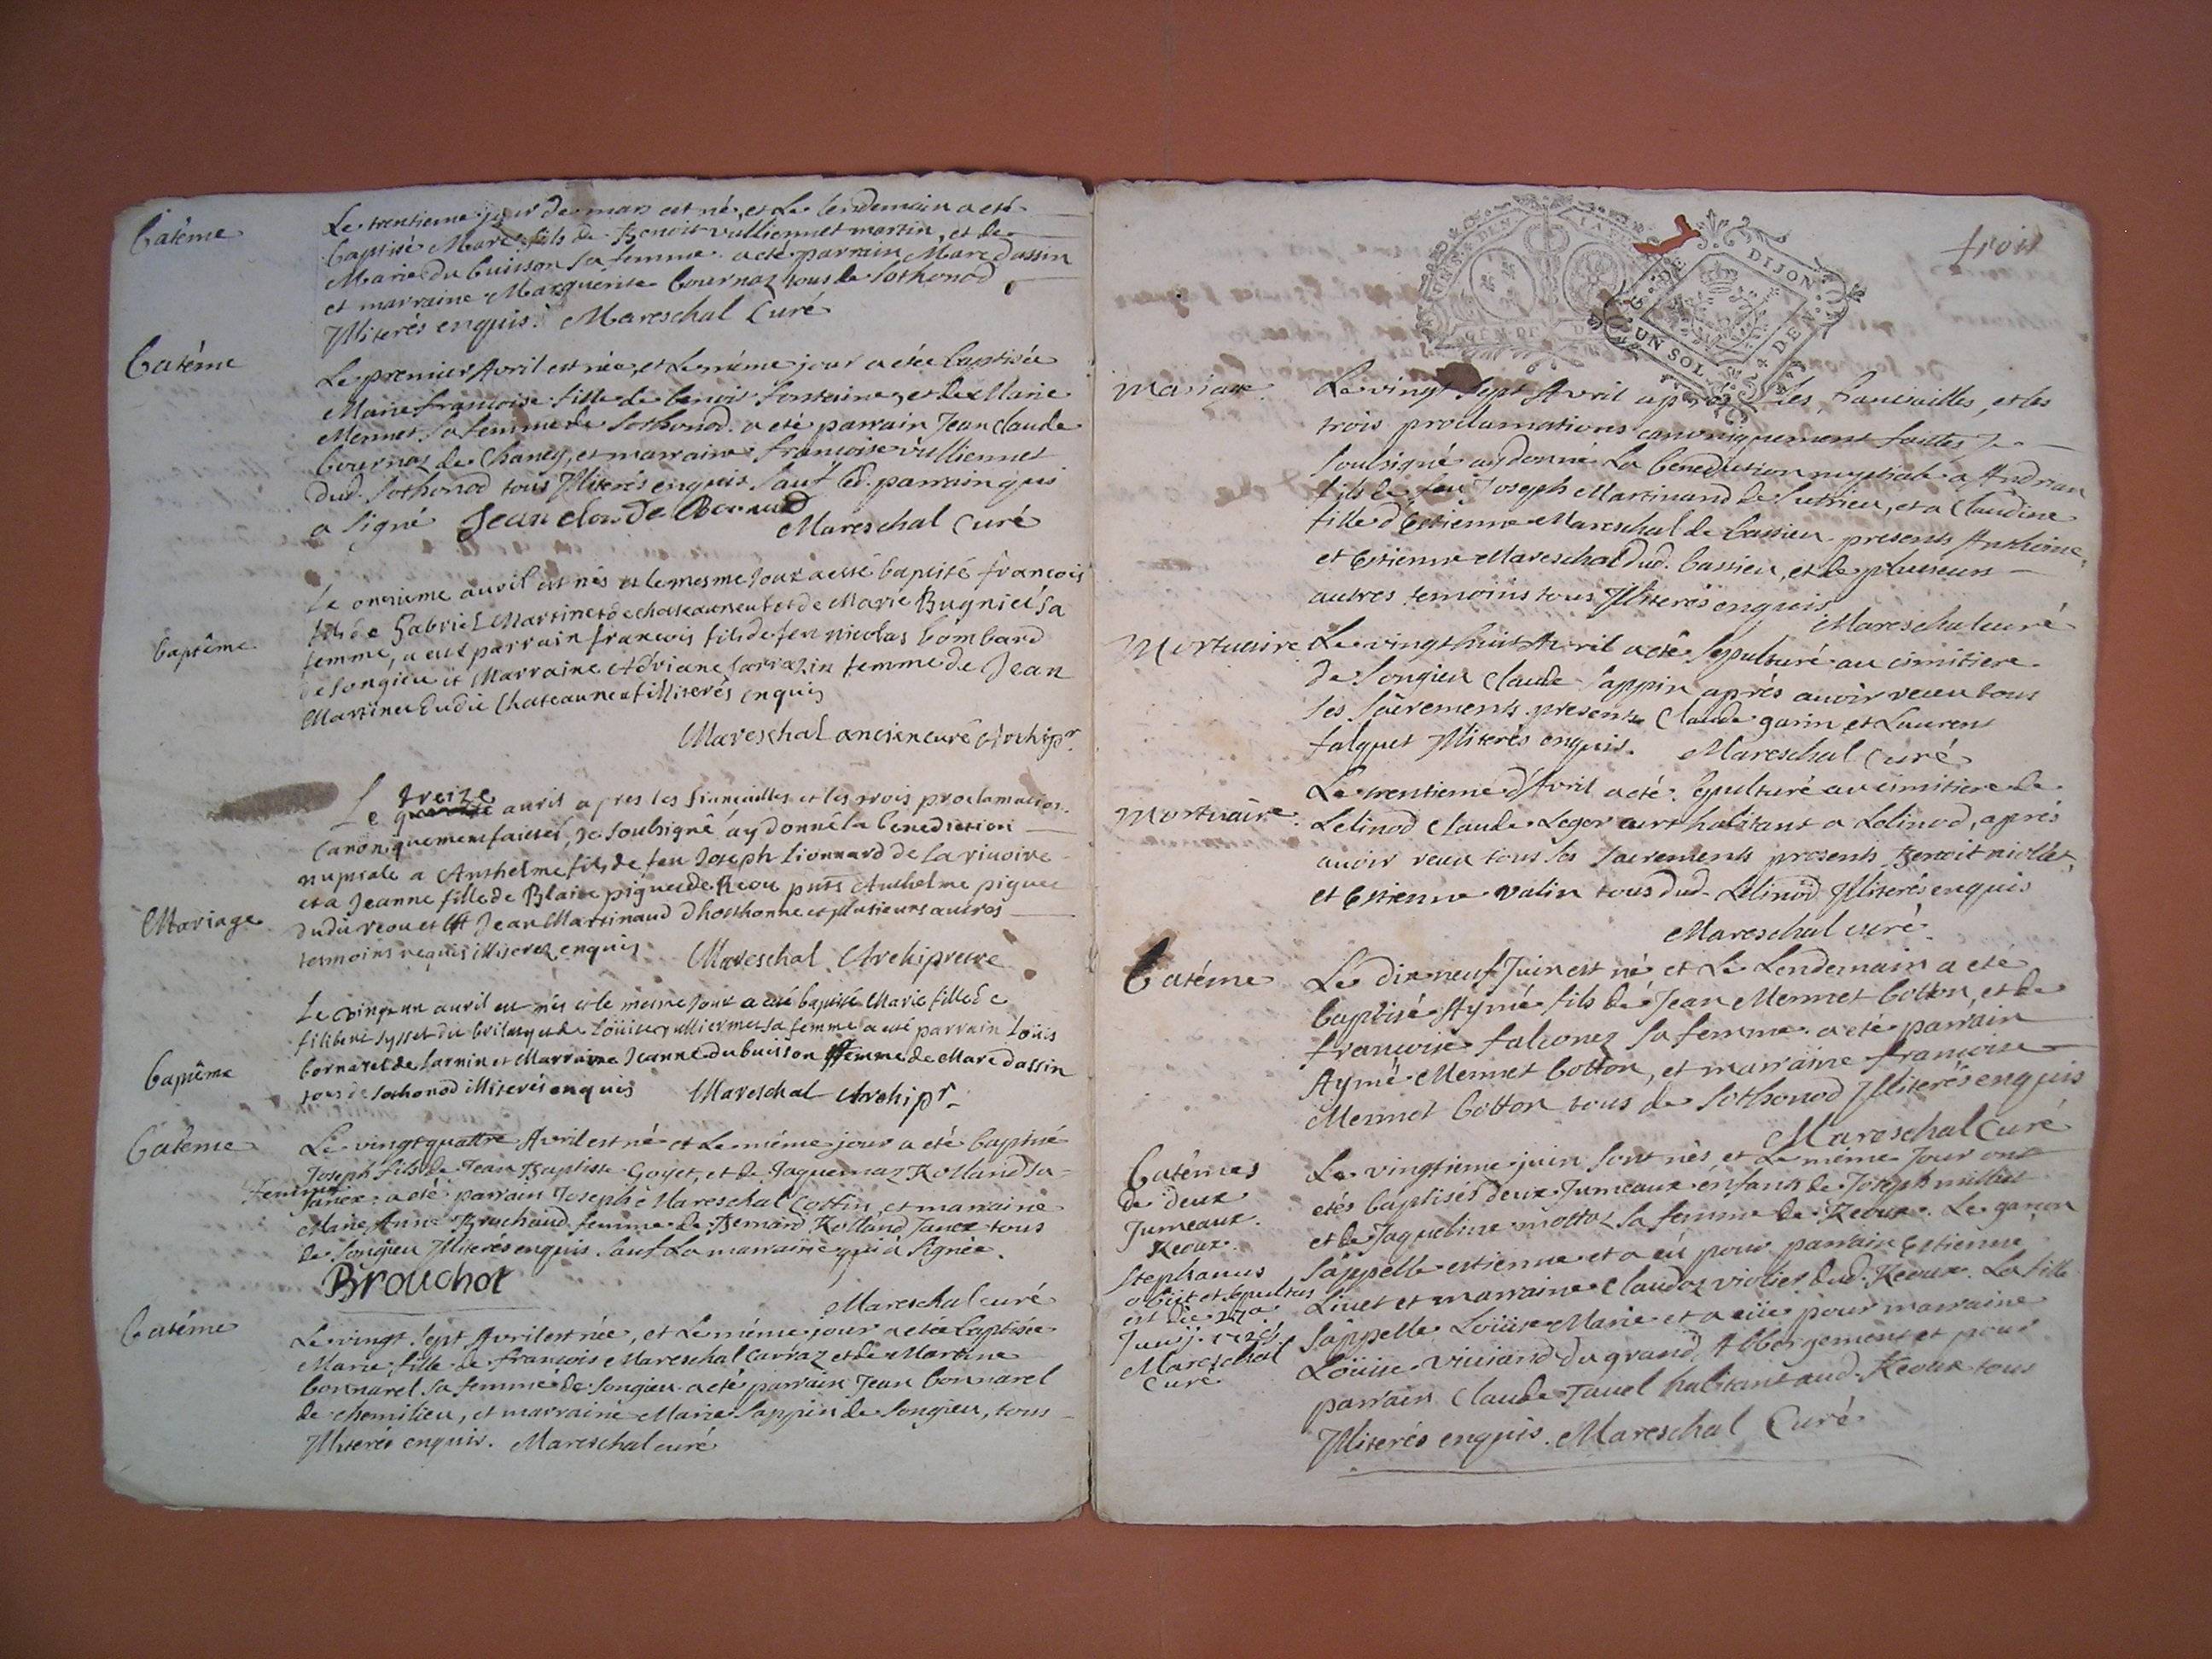 Batéme
Le trentieme jour de mars est né, et Le lendemain a eté
baptisé Marc fils de Benoit vulliennet martin, et de
Marie du buisson sa femme. a eté parrain Marc dassin
et marraine Marguerite bournaz tous de Sothonod
Illiterés enquis. Mareschal Curé
Batéme
Le premier Avril est née, et Le méme jour a etée baptisée
Marie francoise fille de benoit fontaine, et de Marie
Mermet sa femme de Sothonod. a eté parrain Jean Claude
bournaz de Chaney, et marraine francoise vulliennet
dud. Sothonod tous Illiterés enquis sauf led. parrain qui
a signé Jean clau de
Mareschal Curé
baptême
Le onzieme auril est nés et le mesme jour a esté baptisé francois
fils de Gabriel Martinet de chateauneuf et de Marie Bugniet sa
femme, a eut parrain francois fils de feu nicolas bombard
de songieu et Marraine Adriane sarrazin femme de Jean
Martinet dudit Chateauneuf illiterés enquis
Mareschal ancien curé Archipr.
Mariage
Le treize auril apres les fiancailles et les trois proclamations
canoniquement faittes, je soubsigné ay donné la benediction
nuptiale a Anthelme fils de feu Joseph Lionnard de la riuoire
et a Jeanne fille de Blaise piguet de Reou pnts Anthelme piguet
dudit reou et Jean Martinaud dhosthonne et plusieurs autres
tesmoins requis illiterez enquis Mareschal Archipretre
bapême
Le vingt un auril est née et le mesme jour a esté baptisée Marie fille de
filibert sysset dit et de Loüise vulliermet sa femme a eut parrain Loüis
bornarel de Larnin et Marraine Jeanne du buisson femme de Marc dassin
tous de sothonod illiterés enquis Mareschal Archipr.
Batême
Le vingt quattre Avril est né et Le méme jour a eté baptisé
Joseph fils de Jean Baptiste Goyet, et de Jaquemaz Rolland sa
femme
Janex. a eté parrain Joseph Mareschal Cottin, et marraine
Marie Anne Bruchaud femme de Bernard Rolland Janex tous
de Songieu Illiterés enquis sauf La marraine qui a signée.
Brouchot
Mareschal curé
Batéme
Le vingt sept Avril est née, et Le méme jour a etée baptisée
Marie fille de francois Mareschal Carraz et de Martine
bonnarel sa femme de songieu. a eté parrain Jean bonnarel
de chemilieu, et marraine Marie Sappin de Songieu, tous
Illiterés enquis. Mareschal curé
trois
GEN DE DIJON
UN SOL
Mariage
Le vingt sept Avril aprés Les fiancailles, et les
trois proclamations canoniquement faites Je
soussigné ay donné La benediction nuptiale a Andrian
fils de feu Joseph Martinand de Sutrieu, et a Claudine
fille d'Estienne Mareschal de bassieu. presents Anthoine
et Estienne Mareschal dud. bassieu, et de plusieurs
autres temoins tous Illiterés enquis
Mareschal curé
Mortuaire
Le vingt huit Avril a eté sepulturé au cimitiere
de Songieu Claude Sappin aprés auoir receu tous
ses sacrements. presents Claude garin et Laurent
falquet Illiterés enquis. Mareschal Curé
Mortuaire
Le trentieme d'Avril a eté sepulturé au cimitiere de
Lelinod Claude Leger habitant a Lelinod, aprés
auoir receu tous ses sacrements presents Benoit niollet
et Estienne valin tous dud. Lelinod Illiterés enquis
Mareschal curé.
Batéme
Le dix neuf Juin est né et Le Lendemain a eté
baptisé Aymé fils de Jean Mermet botton, et de
francoise falconez sa femme. a eté parrain
Aymé Mermet botton, et marraine francoise
Mermet botton tous de Sothonod Illiterés enquis
Mareschal Curé
Batémes
de deux
Jumeaux
Reoux.
Le vingtieme juin sont nés, et Le méme Jour ont
etés baptisés deux Jumeaux enfants de Joseph milliet
et de Jaqueline mottoz sa femme de Reoux. Le garcon
Stephanus
obiit et sepultus
est die 27a
Junij
Mareschal
Curé
s'appelle estienne et a eü pour parrain Estienne
Liuet et marraine Claudaz violier dud. Reoux. La fille
s'appelle Loüise Marie et a eüe pour marraine
Loüise viuiand du grand Abbergement et pour
parrain Claude Jauel habitant aud. Reoux tous
Illiterés enquis. Mareschal Curé